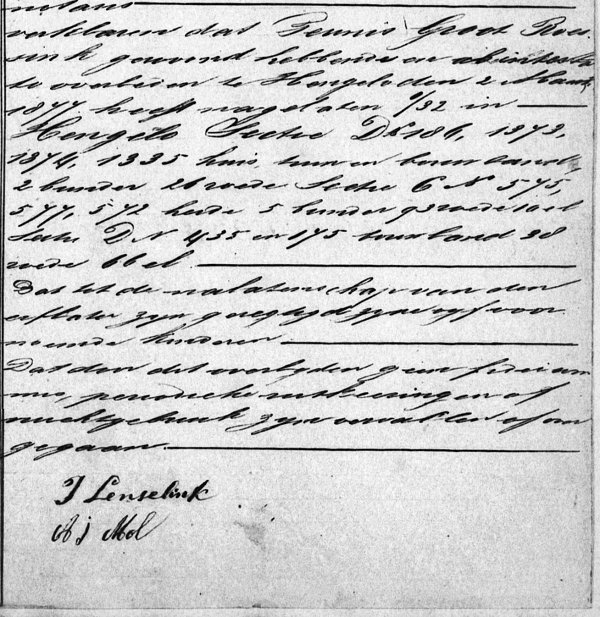 verklaren dat Teunis Groot Roes
sink gewoond hebbende en ab intestato
te overleden te Hengelo den 2 Maart
1877 heeft nagelaten 9/32 in
Hengelo Sectie D N 186, 1373,
1374, 1335 huis, tuin en bouwland
2 bunder 26 roede Sectie G N 575,
577, 572 heide 5 bunder 93 roede el
Sectie D N 435 en 175 bouwland 38
roede 66 el
Dat tot de nalatenschap van den
erflater zijn geregtigd zyne vyf voor
noemde kinderen
Dat door dit overlyden geen fideicom
mis, periodieke uitkeeringen of
vruchtgebruik zyn vervallen of over
gegaan
J Lenselink
A J Mol